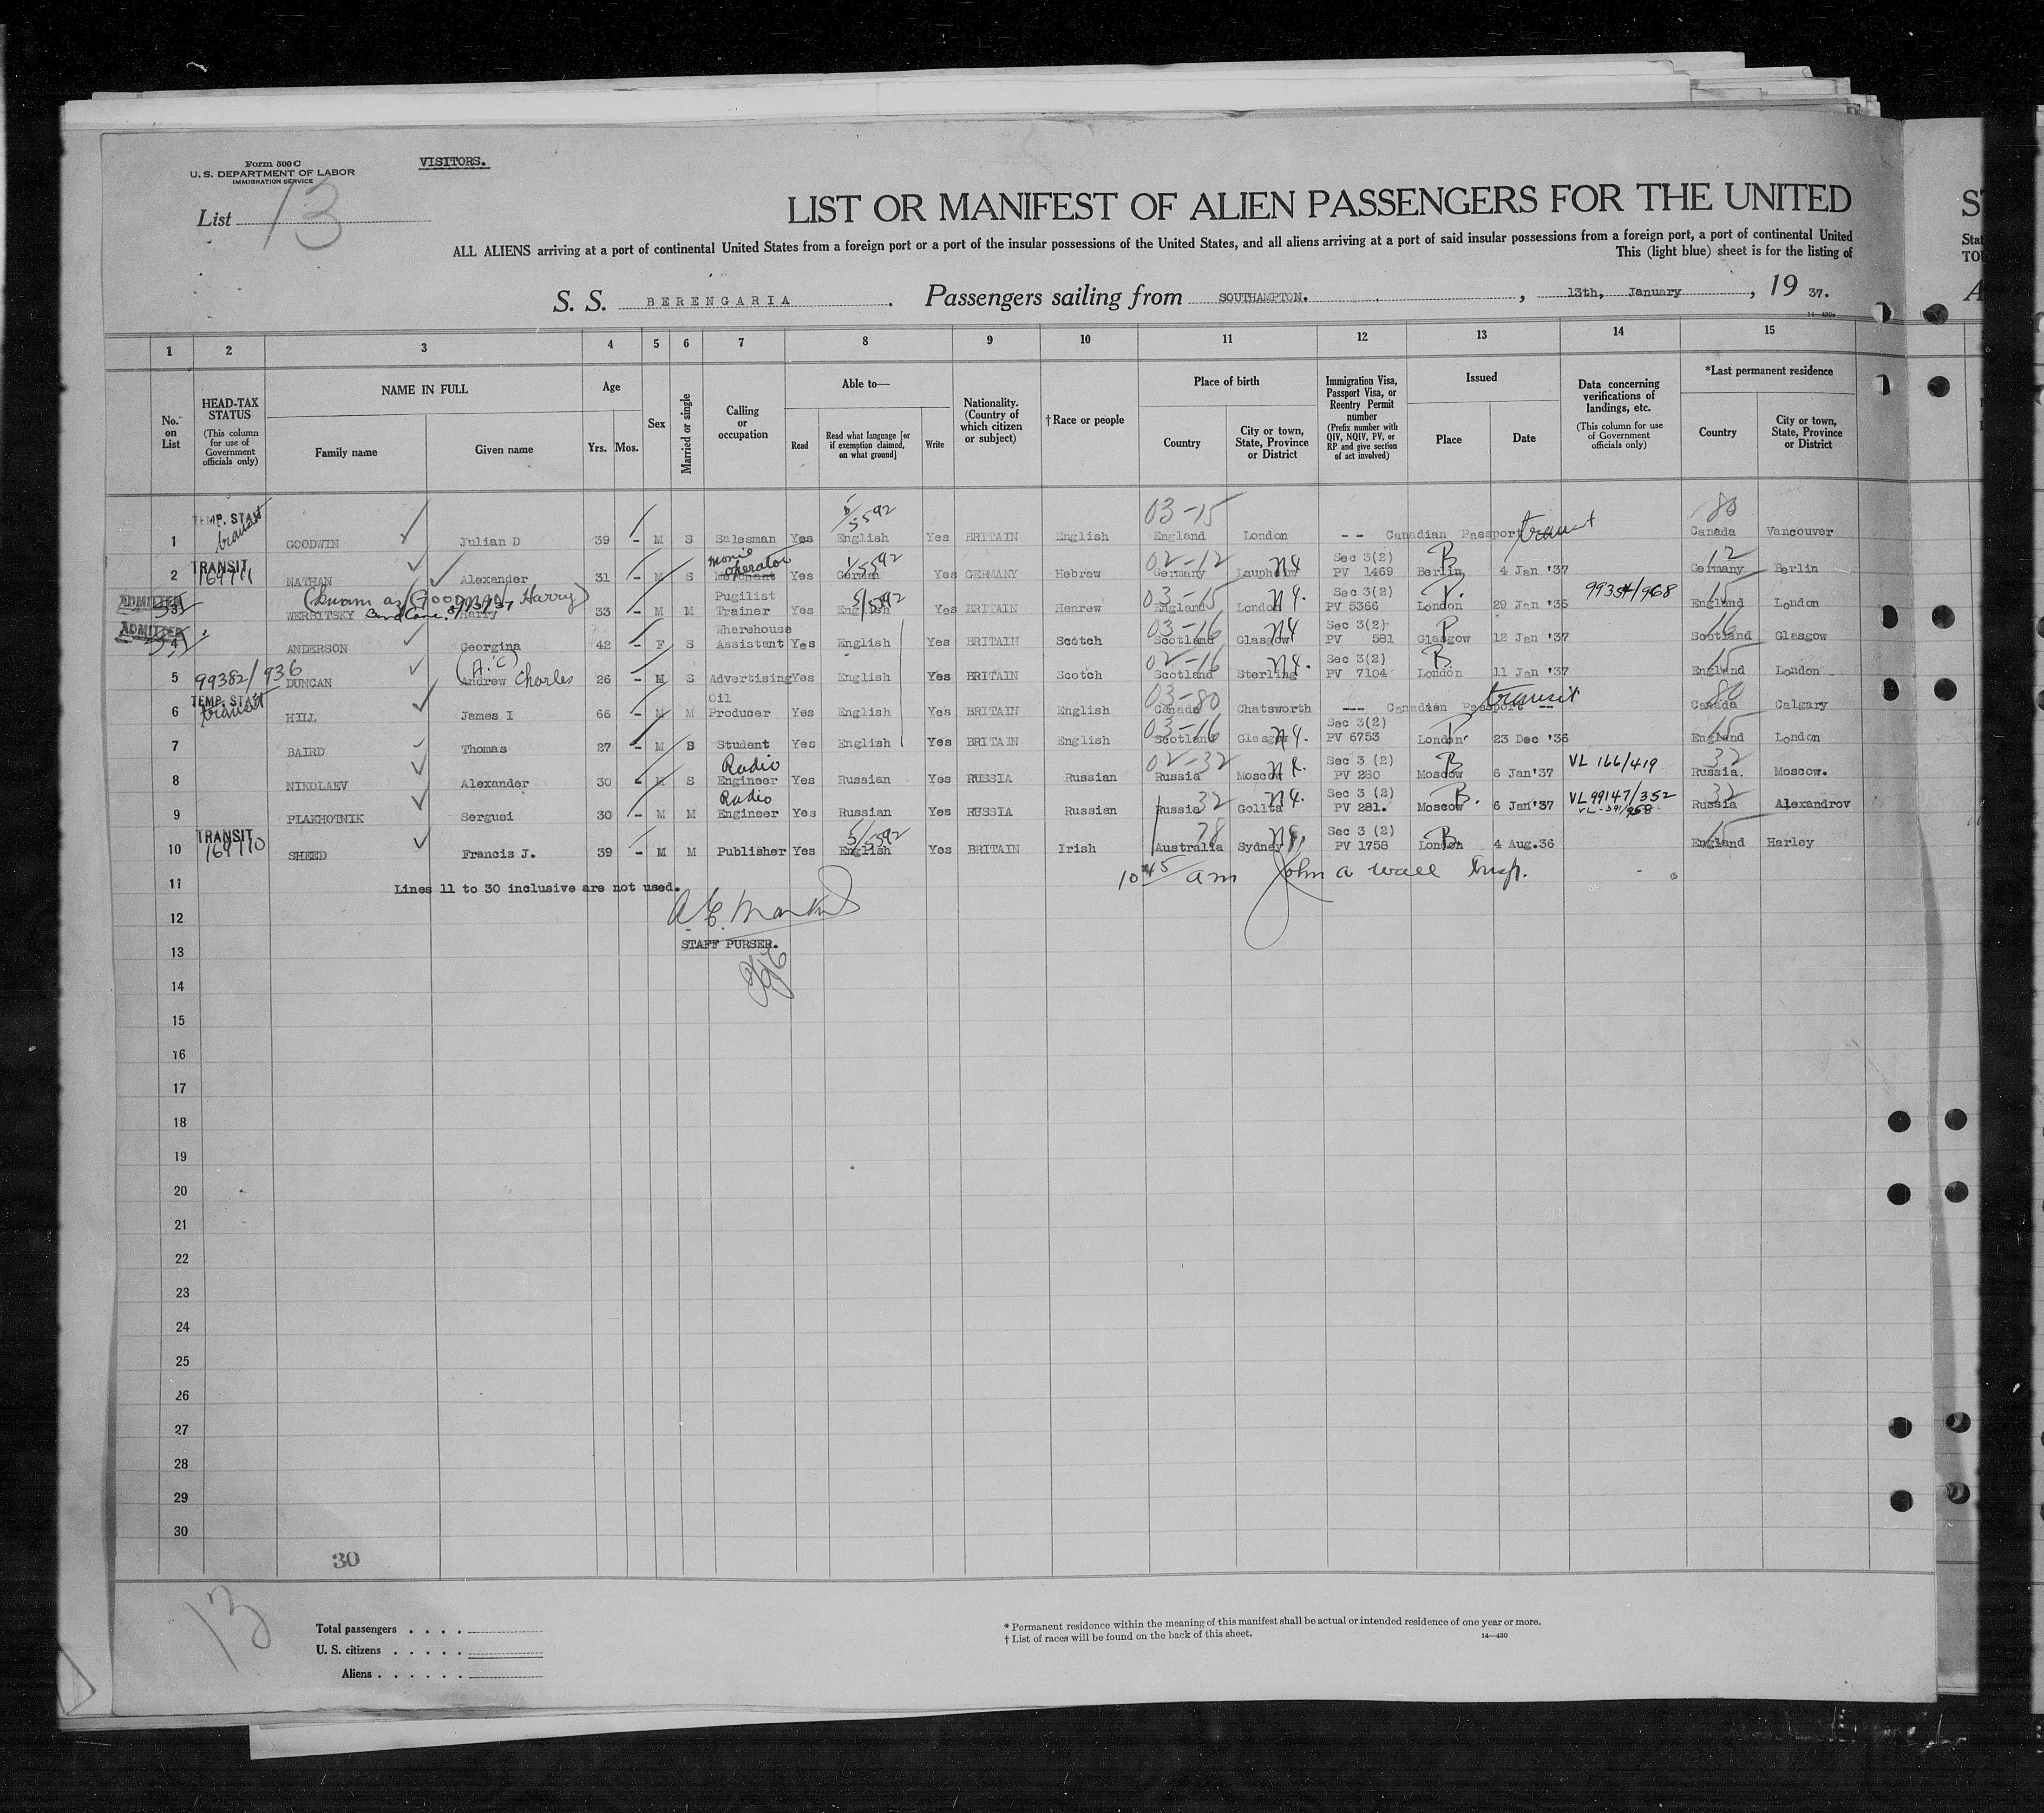 Form 500 C
U. S. DEPARTMENT OF LABOR
IMMIGRATION SERVICE
VISITORS.
List 13
LIST OR MANIFEST OF ALIEN PASSENGERS FOR THE UNITED
ALL ALIENS arriving at a port of continental United States from a foreign port or a port of the insular possessions of the United States, and all aliens arriving at a port of said insular possessions from a foreign port, a port of continental United
This (light blue) sheet is for the listing of
S. S. BERENGARIA. Passengers sailing from SOUTHAMPTON. , 13th, January , 19 37.
1 2 3 4 5 6 7 8 9 10 11 12 13 14 15
No. on List
HEAD-TAX STATUS (This column for use of Government officials only)
NAME IN FULL Family name Given name
Age Yrs. Mos.
Sex
Married or single
Calling or occupation
Able to— Read Read what language [or if exemption claimed, on what ground] Write
Nationality. (Country of which citizen or subject)
†Race or people
Place of birth Country City or town, State, Province or District
Immigration Visa, Passport Visa, or Reentry Permit number (Prefix number with QIV, NQIV, PV, or RP and give section of act involved)
Issued Place Date
Data concerning verifications of landings, etc. (This column for use of Government officials only)
*Last permanent residence Country City or town, State, Province or District
TEMP. STAY transit 5/5592 03-15 transit 80
1 GOODWIN Julian D 39 - M S Salesman Yes English Yes BRITAIN English England London -- Canadian Passport Canada Vancouver
TRANSIT movie operator 02-12 N4 Sec 3(2) B 12
2 NATHAN Alexander 31 - M S Merchant Yes German Yes GERMANY Hebrew Germany Laupheim PV 1469 Berlin 4 Jan '37 Germany Berlin
ADMITTED (known as GOODMAN Harry) Pugilist 03-15 N4. Sec 3(2) P. 15
3 WERBITSKY Harry 33 - M M Trainer Yes English Yes BRITAIN Henrew England London PV 5366 London 29 Jan '36 England London
ADMITTED Wharehouse 03-16 N4 Sec 3(2) P 16
4 ANDERSON Georgina 42 - F S Assistant Yes English Yes BRITAIN Scotch Scotland Glasgow PV 581 Glasgow 12 Jan '37 Scotland Glasgow
99382/936 (A.C) 02-16 N4. Sec 3(2) B 15
5 DUNCAN Andrew Charles 26 - M S Advertising Yes English Yes BRITAIN Scotch Scotland Sterling PV 7104 London 11 Jan '37 England London
TEMP. STAY transit Oil 03-80 transit 80
6 HILL James I 66 - M M Producer Yes English Yes BRITAIN English Canada Chatsworth --- Canadian Passport -- Canada Calgary
03-16 N4. Sec 3(2) P 15
7 BAIRD Thomas 27 - M S Student Yes English Yes BRITAIN English Scotland Glasgow PV 6753 London 23 Dec '36 England London
Radio 02-32 Sec 3 (2) B VL 166/419 32
8 NIKOLAEV Alexander 30 - M S Engineer Yes Russian Yes RUSSIA Russian Russia Moscow PV 280 Moscow 6 Jan'37 Russia. Moscow.
Radio 32 N4. Sec 3 (2) B. VL 99147/352 32
9 PLAKHOTNIK Sergusi 30 - M M Engineer Yes Russian Yes RUSSIA Russian Russia Gollta PV 281. Moscow 6 Jan'37 Russia Alexandrov
TRANSIT 78 Sec 3 (2) B 15
10 SHEED Francis J. 39 - M M Publisher Yes English Yes BRITAIN Irish Australia Sydney PV 1758 London 4 Aug.36 England Harley
10 45 am John a Wall Insp.
11 Lines 11 to 30 inclusive are not used.
12
STAFF PURSER.
13
14
15
16
17
18
19
20
21
22
23
24
25
26
27
28
29
30
30
13
Total passengers . . . .
U. S. citizens . . . . .
Aliens . . . . . .
* Permanent residence within the meaning of this manifest shall be actual or intended residence of one year or more.
† List of races will be found on the back of this sheet.
14—430